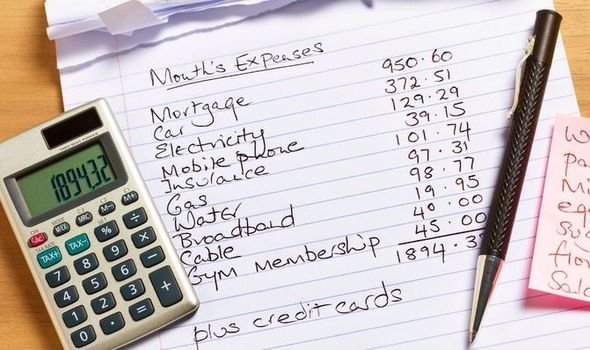 Month's Expenses
Mortgage 950.60
Car 372.51
Electricity 129.29
Mobile phone 39.15
Insurance 101.74
Gas 97.31
Water 98.77
Broadband 19.95
Cable 40.00
Gym Membership 45.00
1894.3
plus credit cards
1894.32
MRC M- M+
TAX- TAX+ % ÷
7 8 9 ×
4 5 6 −
1 2 3 +
0 . =